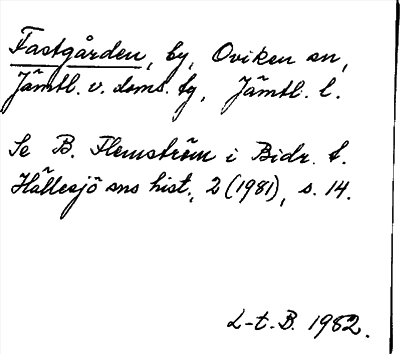 Fastgården, by, Oviken sn,
Jämtl. v. doms. tg, Jämtl. l.
Se B. Flemström i Bidr. t.
Hällesjö sns hist., 2 (1981), s. 14.
L-t. B. 1982.